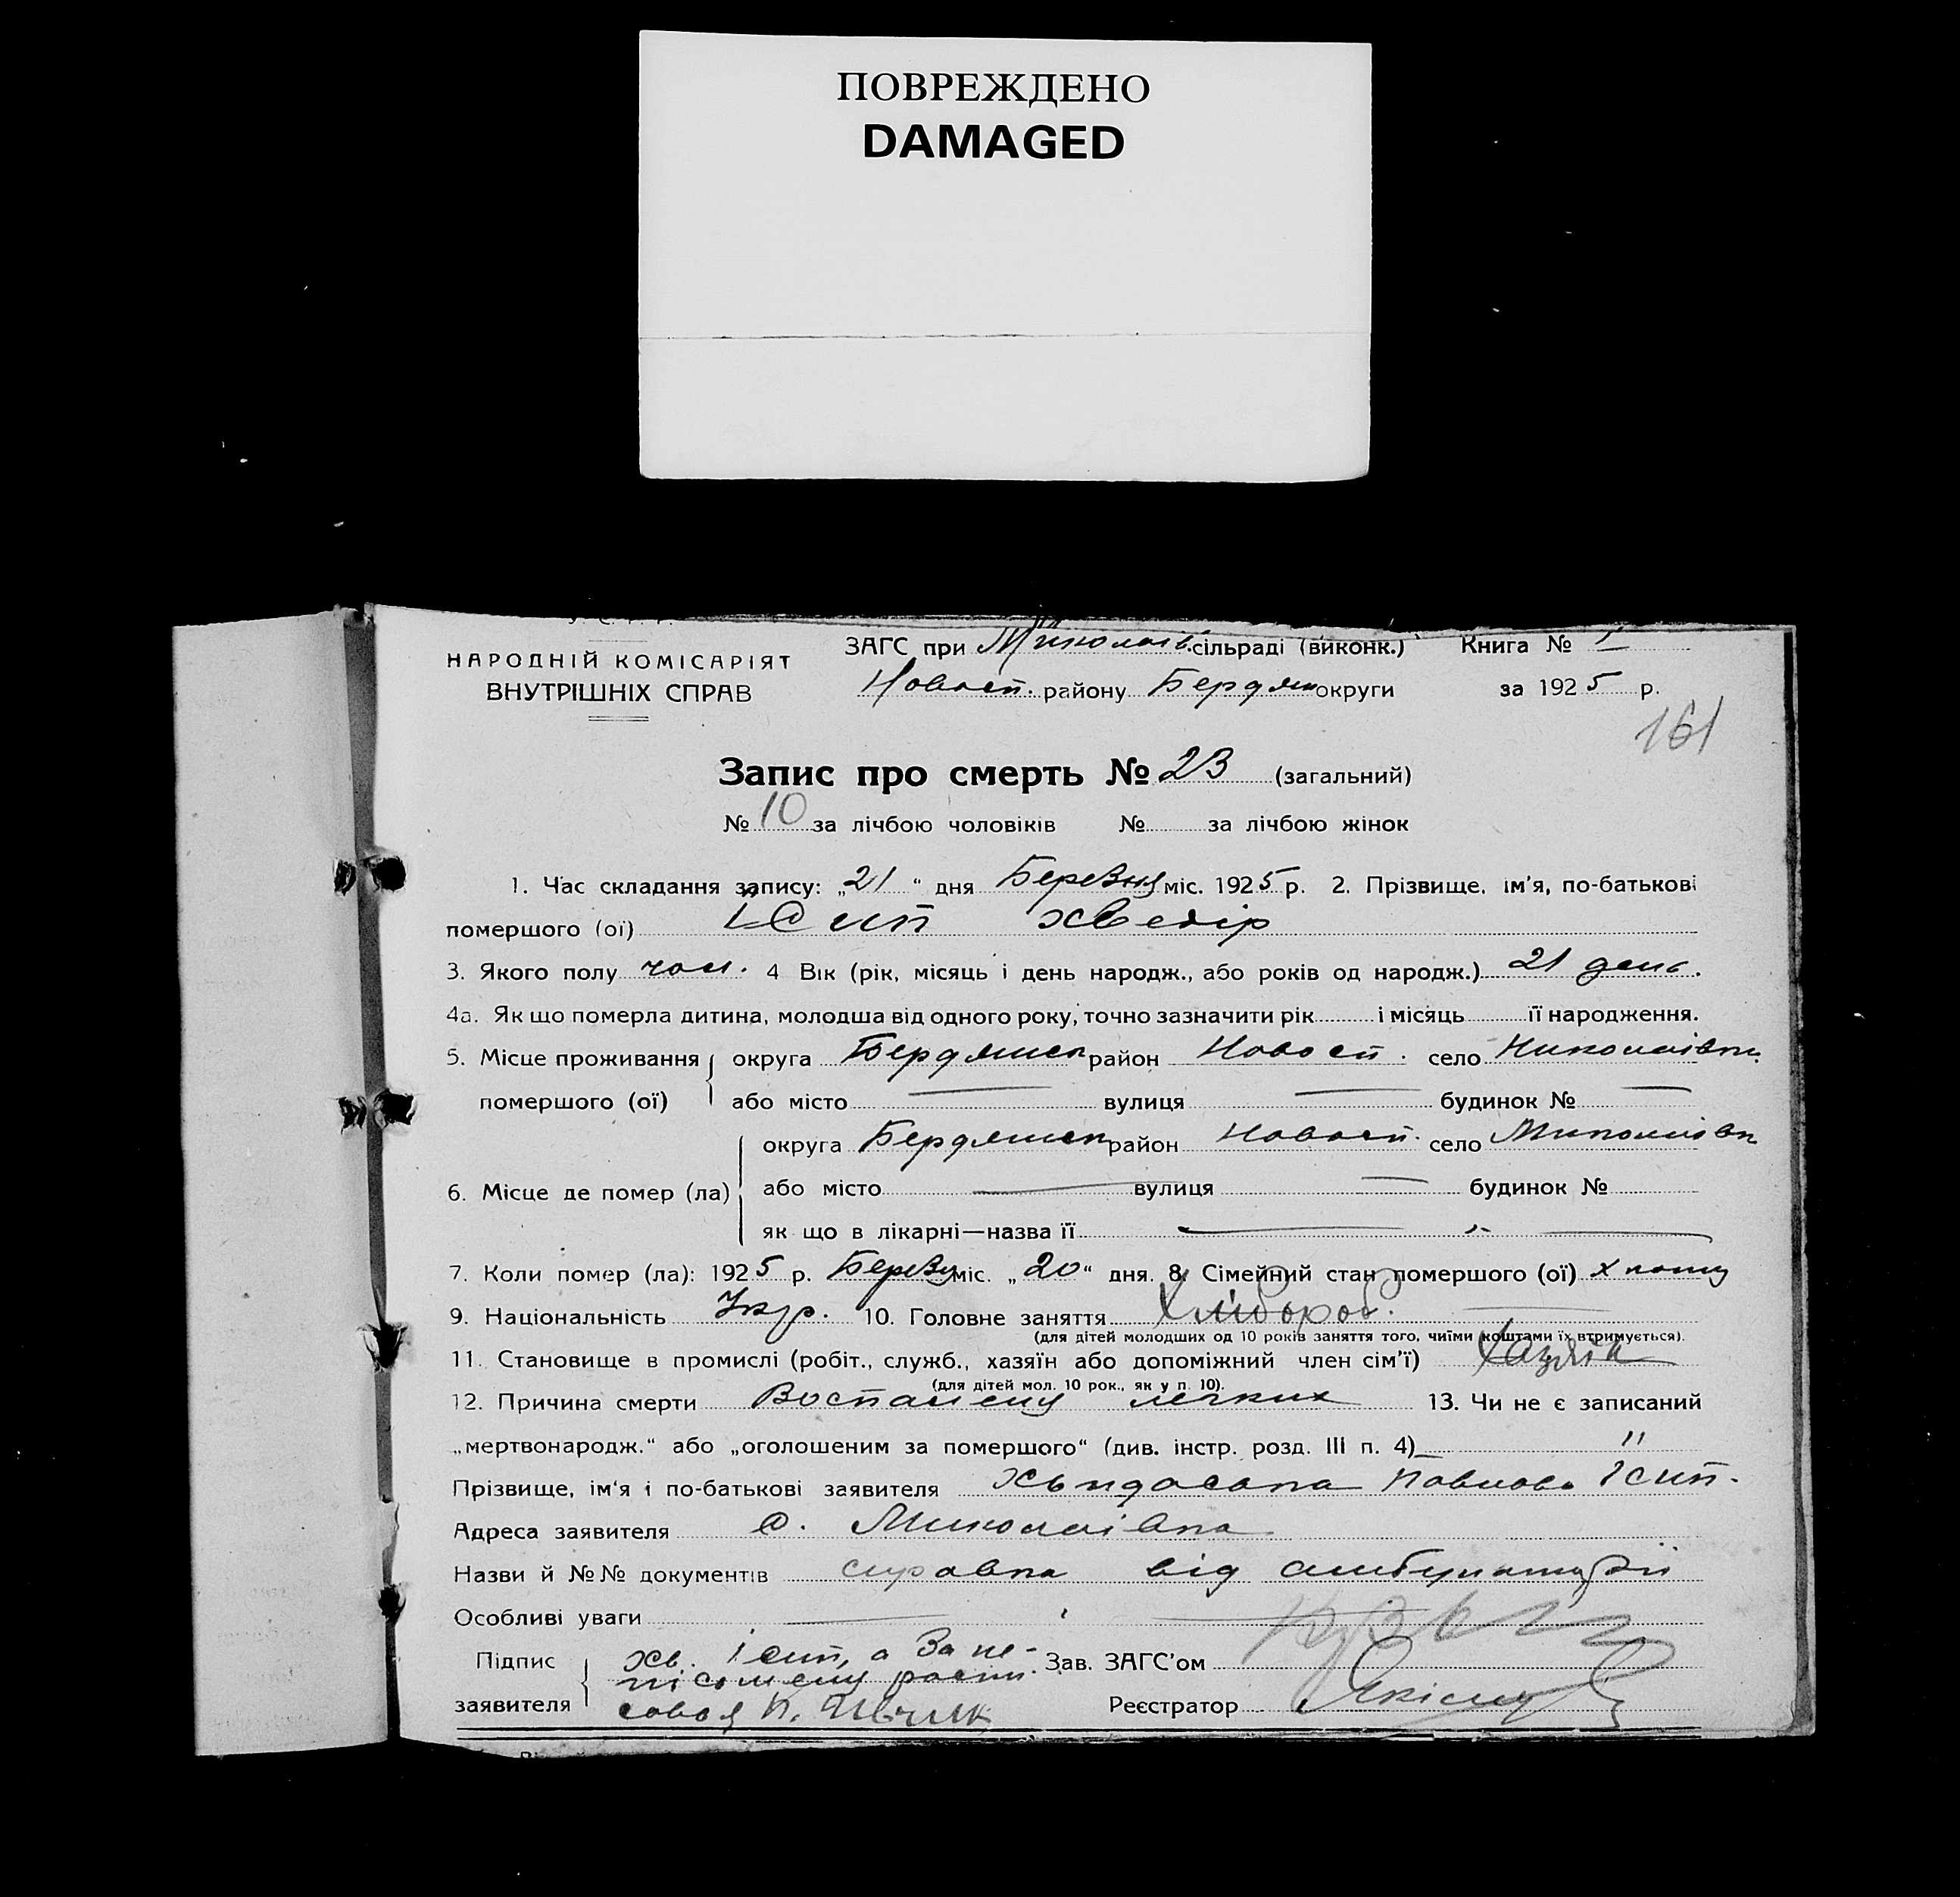 ПОВРЕЖДЕНО
DAMAGED
НАРОДНІЙ КОМІСАРІЯТ
ВНУТРІШНІХ СПРАВ
ЗАГС при Миколаїв. сільраді (виконк.) Книга № I
Новосп. району Бердян округи за 1925 р.
161
Запис про смерть № 23 (загальний)
№ 10 за лічбою чоловіків № за лічбою жінок
1. Час складання запису: „21“ дня Березня міс. 1925 р. 2. Прізвище, ім'я, по-батькові
помершого (ої) Ісип Хведір
3. Якого полу чол. 4 Вік (рік, місяць і день народж., або років од народж.) 21 день.
4а. Як що померла дитина, молодша від одного року, точно зазначити рік і місяць її народження.
5. Місце проживання округа Бердянськ район Новосп. село Николаівки
помершого (ої) або місто — вулиця — будинок № —
округа Бердянськ район Новосп. село Миколаівк
6. Місце де помер (ла) або місто — вулиця — будинок №
як що в лікарні—назва її —
7. Коли помер (ла): 1925 р. Березн міс. „20“ дня. 8. Сімейний стан помершого (ої)
9. Національність Укр. 10. Головне заняття Хлібороб.
(для дітей молодших од 10 років заняття того, чиїми коштами їх втримується).
11. Становище в промислі (робіт., служб., хазяїн або допоміжний член сім'ї) Хазяїн
(для дітей мол. 10 рок., як у п. 10).
12. Причина смерти Воспаленя легких 13. Чи не є записаний
„мертвонародж.“ або „оголошеним за помершого“ (див. інстр. розд. III п. 4) "
Прізвище, ім'я і по-батькові заявителя Павлова Ісип.
Адреса заявителя с. Миколаівка
Назви й №№ документів справка від амбулаторії
Особливі уваги —
Підпис Хв. Ісип, а за не- Зав. ЗАГС'ом
заявителя Реєстратор